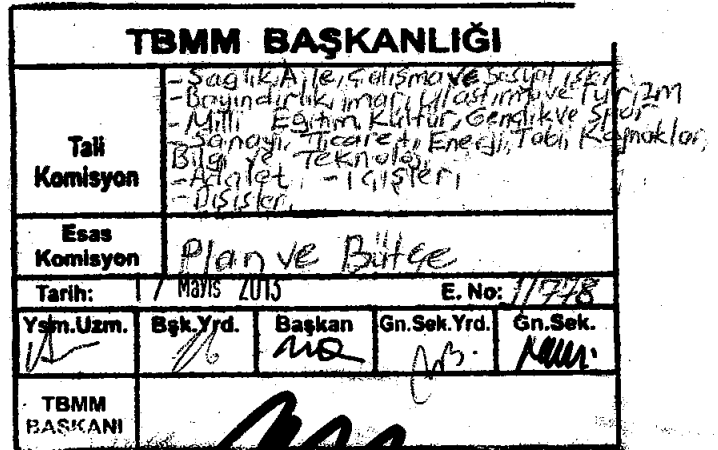 TBMM BAŞKANLIĞI
Tali Komisyon
- Sağlık, Aile, Çalışma ve Sosyal İşler
- Bayındırlık, imar, Ulaştırma ve Turizm
- Milli Eğitim, Kültür, Gençlik ve Spor
- Sanayi, Ticaret, Enerji, Tabii Kaynaklar,
Bilgi ve Teknoloji,
- Adalet, - İçişleri
- Dışişleri
Esas Komisyon
Plan ve Bütçe
Tarih: 17 Mayıs 2013 E. No: 1/778
Ysm.Uzm. Bşk.Yrd. Başkan Gn.Sek.Yrd. Gn.Sek.
TBMM
BAŞKANI